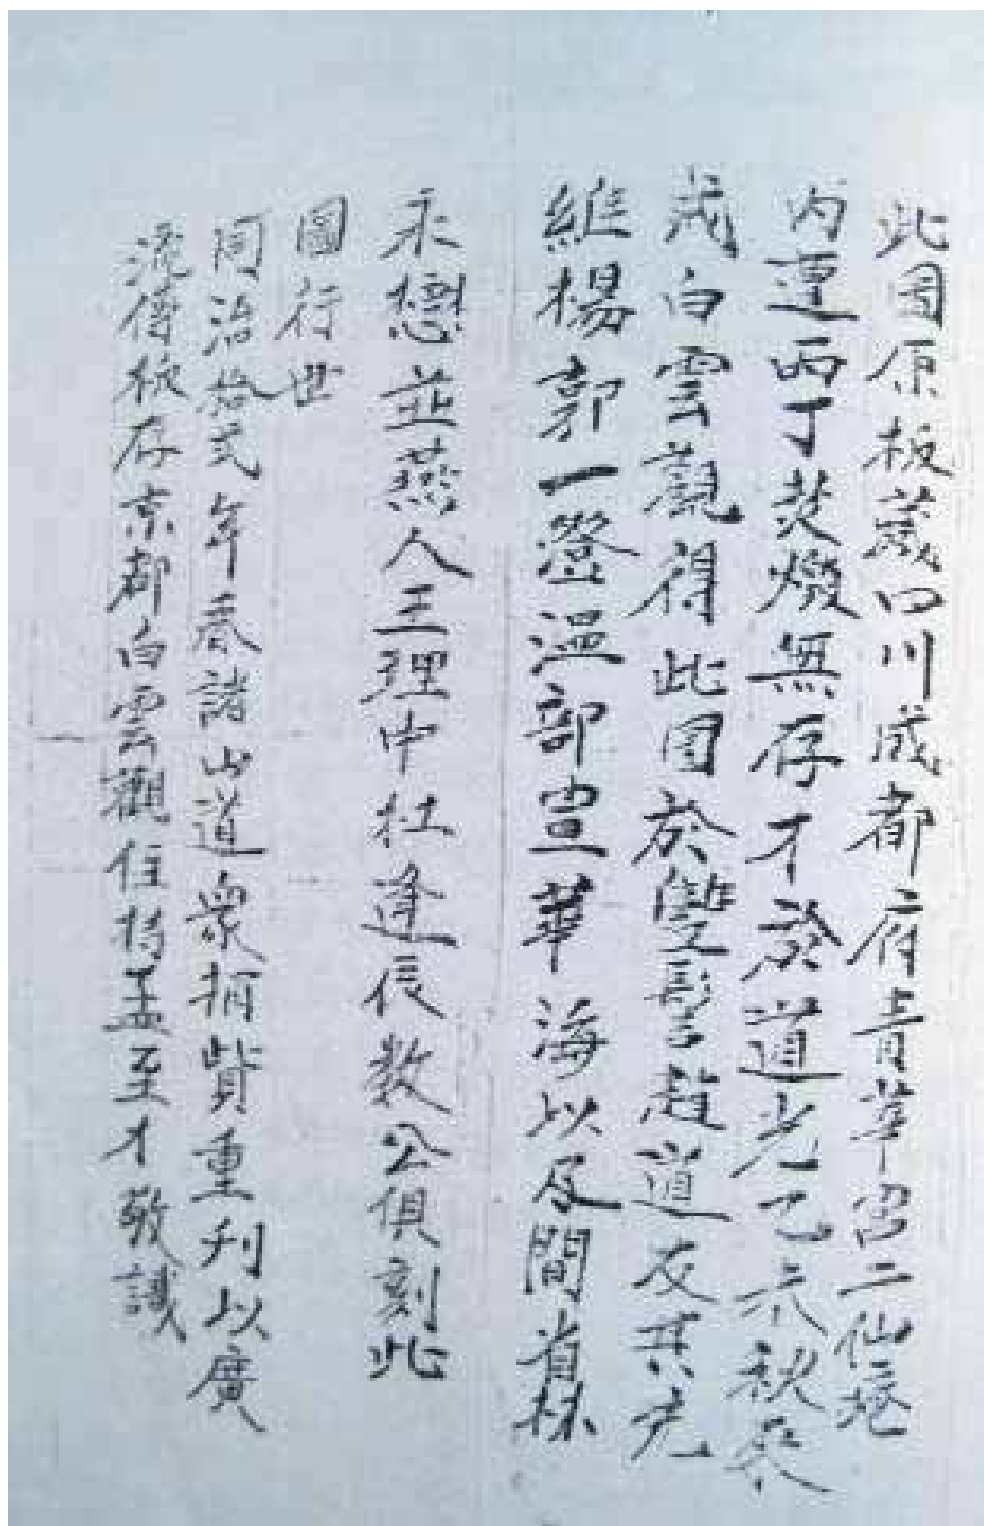 此圖原板藏四川成都府青羊宮二仙菴
內運丙丁焚燬無存才於道光己未秋叅
戎白雲觀得此圖於雙髻趙道友其先
維楊郭一澄溫部萱華海以及閩省林
永懋並燕人王理中杜逢辰數公俱刻此
圖行世
同治拾弍年春諸山道衆捐貲重刋以廣
流傳板存京都白雲觀住持孟至才敬識